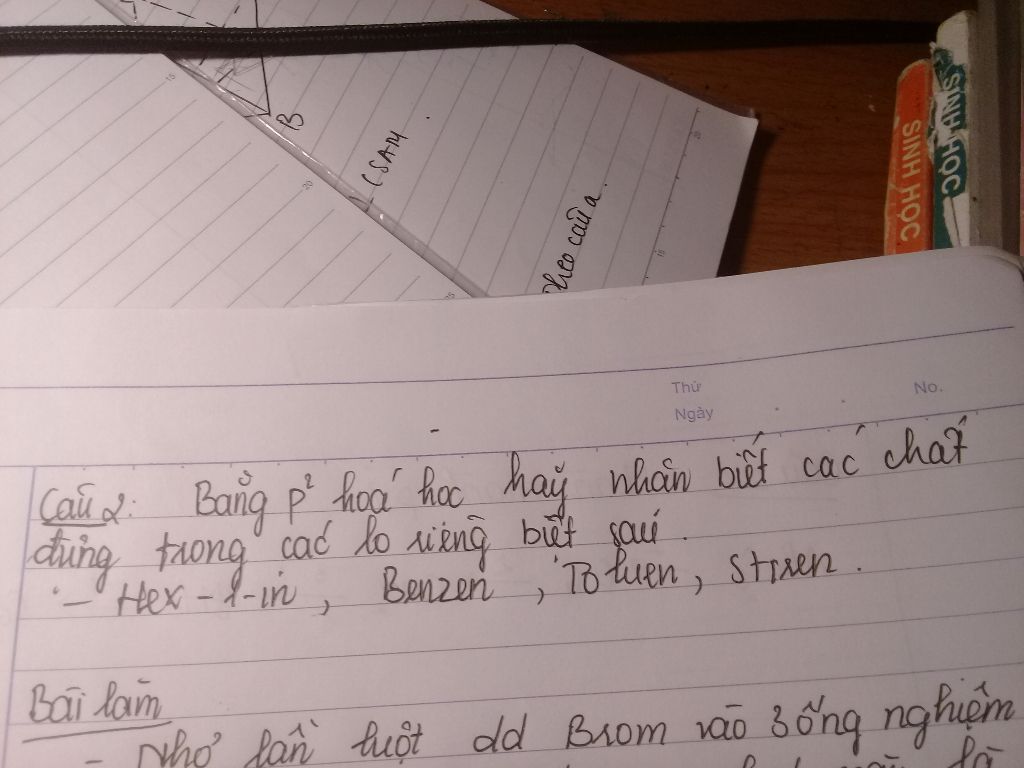 B
(SAM
theo câu a.
SINH HỌC
SINH HỌC
Thứ
No.
Ngày
Câu 2: Bằng p² hoá học hãy nhận biết các chất
đựng trong các lọ riêng biệt sau.
- Hex-1-in, Benzen, Toluen, Stiren.
Bài làm
- Nhỏ lần lượt dd Brom vào 3 ống nghiệm